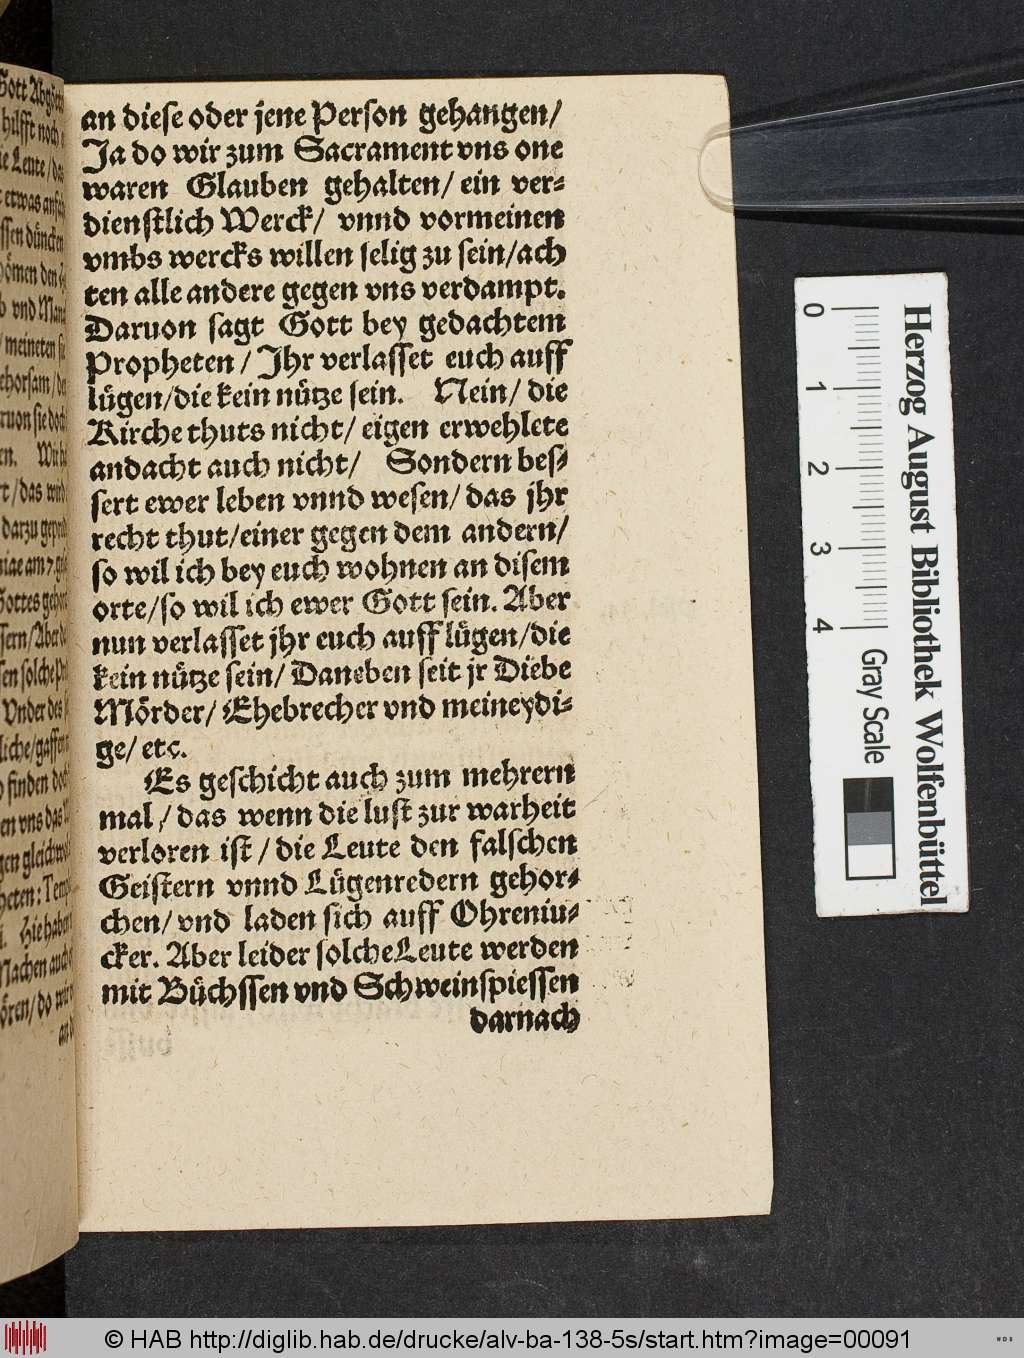 an diese oder jene Person gehangen/
Ja do wir zum Sacrament vns one
waren Glauben gehalten/ ein ver⸗
dienstlich Werck/ vnnd vormeinen
vmbs wercks willen selig zu sein/ach
ten alle andere gegen vns verdampt.
Daruon sagt Gott bey gedachtem
Propheten/ Jhr verlasset euch auff
lügen/die kein nütze sein. Nein/ die
Kirche thuts nicht/ eigen erwehlete
andacht auch nicht/ Sondern bes⸗
sert ewer leben vnnd wesen/ das jhr
recht thut/einer gegen dem andern/
so wil ich bey euch wohnen an disem
orte/so wil ich ewer Gott sein. Aber
nun verlasset jhr euch auff lügen/die
kein nütze sein/ Daneben seit jr Diebe
Mörder/ Ehebrecher vnd meineydi⸗
ge/ etc.
Es geschicht auch zum mehrern
mal/ das wenn die lust zur warheit
verloren ist/ die Leute den falschen
Geistern vnnd Lügenredern gehor⸗
chen/ vnd laden sich auff Ohreniu⸗
cker. Aber leider solche Leute werden
mit Büchssen vnd Schweinspiessen
darnach
Herzog August Bibliothek Wolfenbüttel
0 1 2 3 4
Gray Scale
© HAB http://diglib.hab.de/drucke/alv-ba-138-5s/start.htm?image=00091